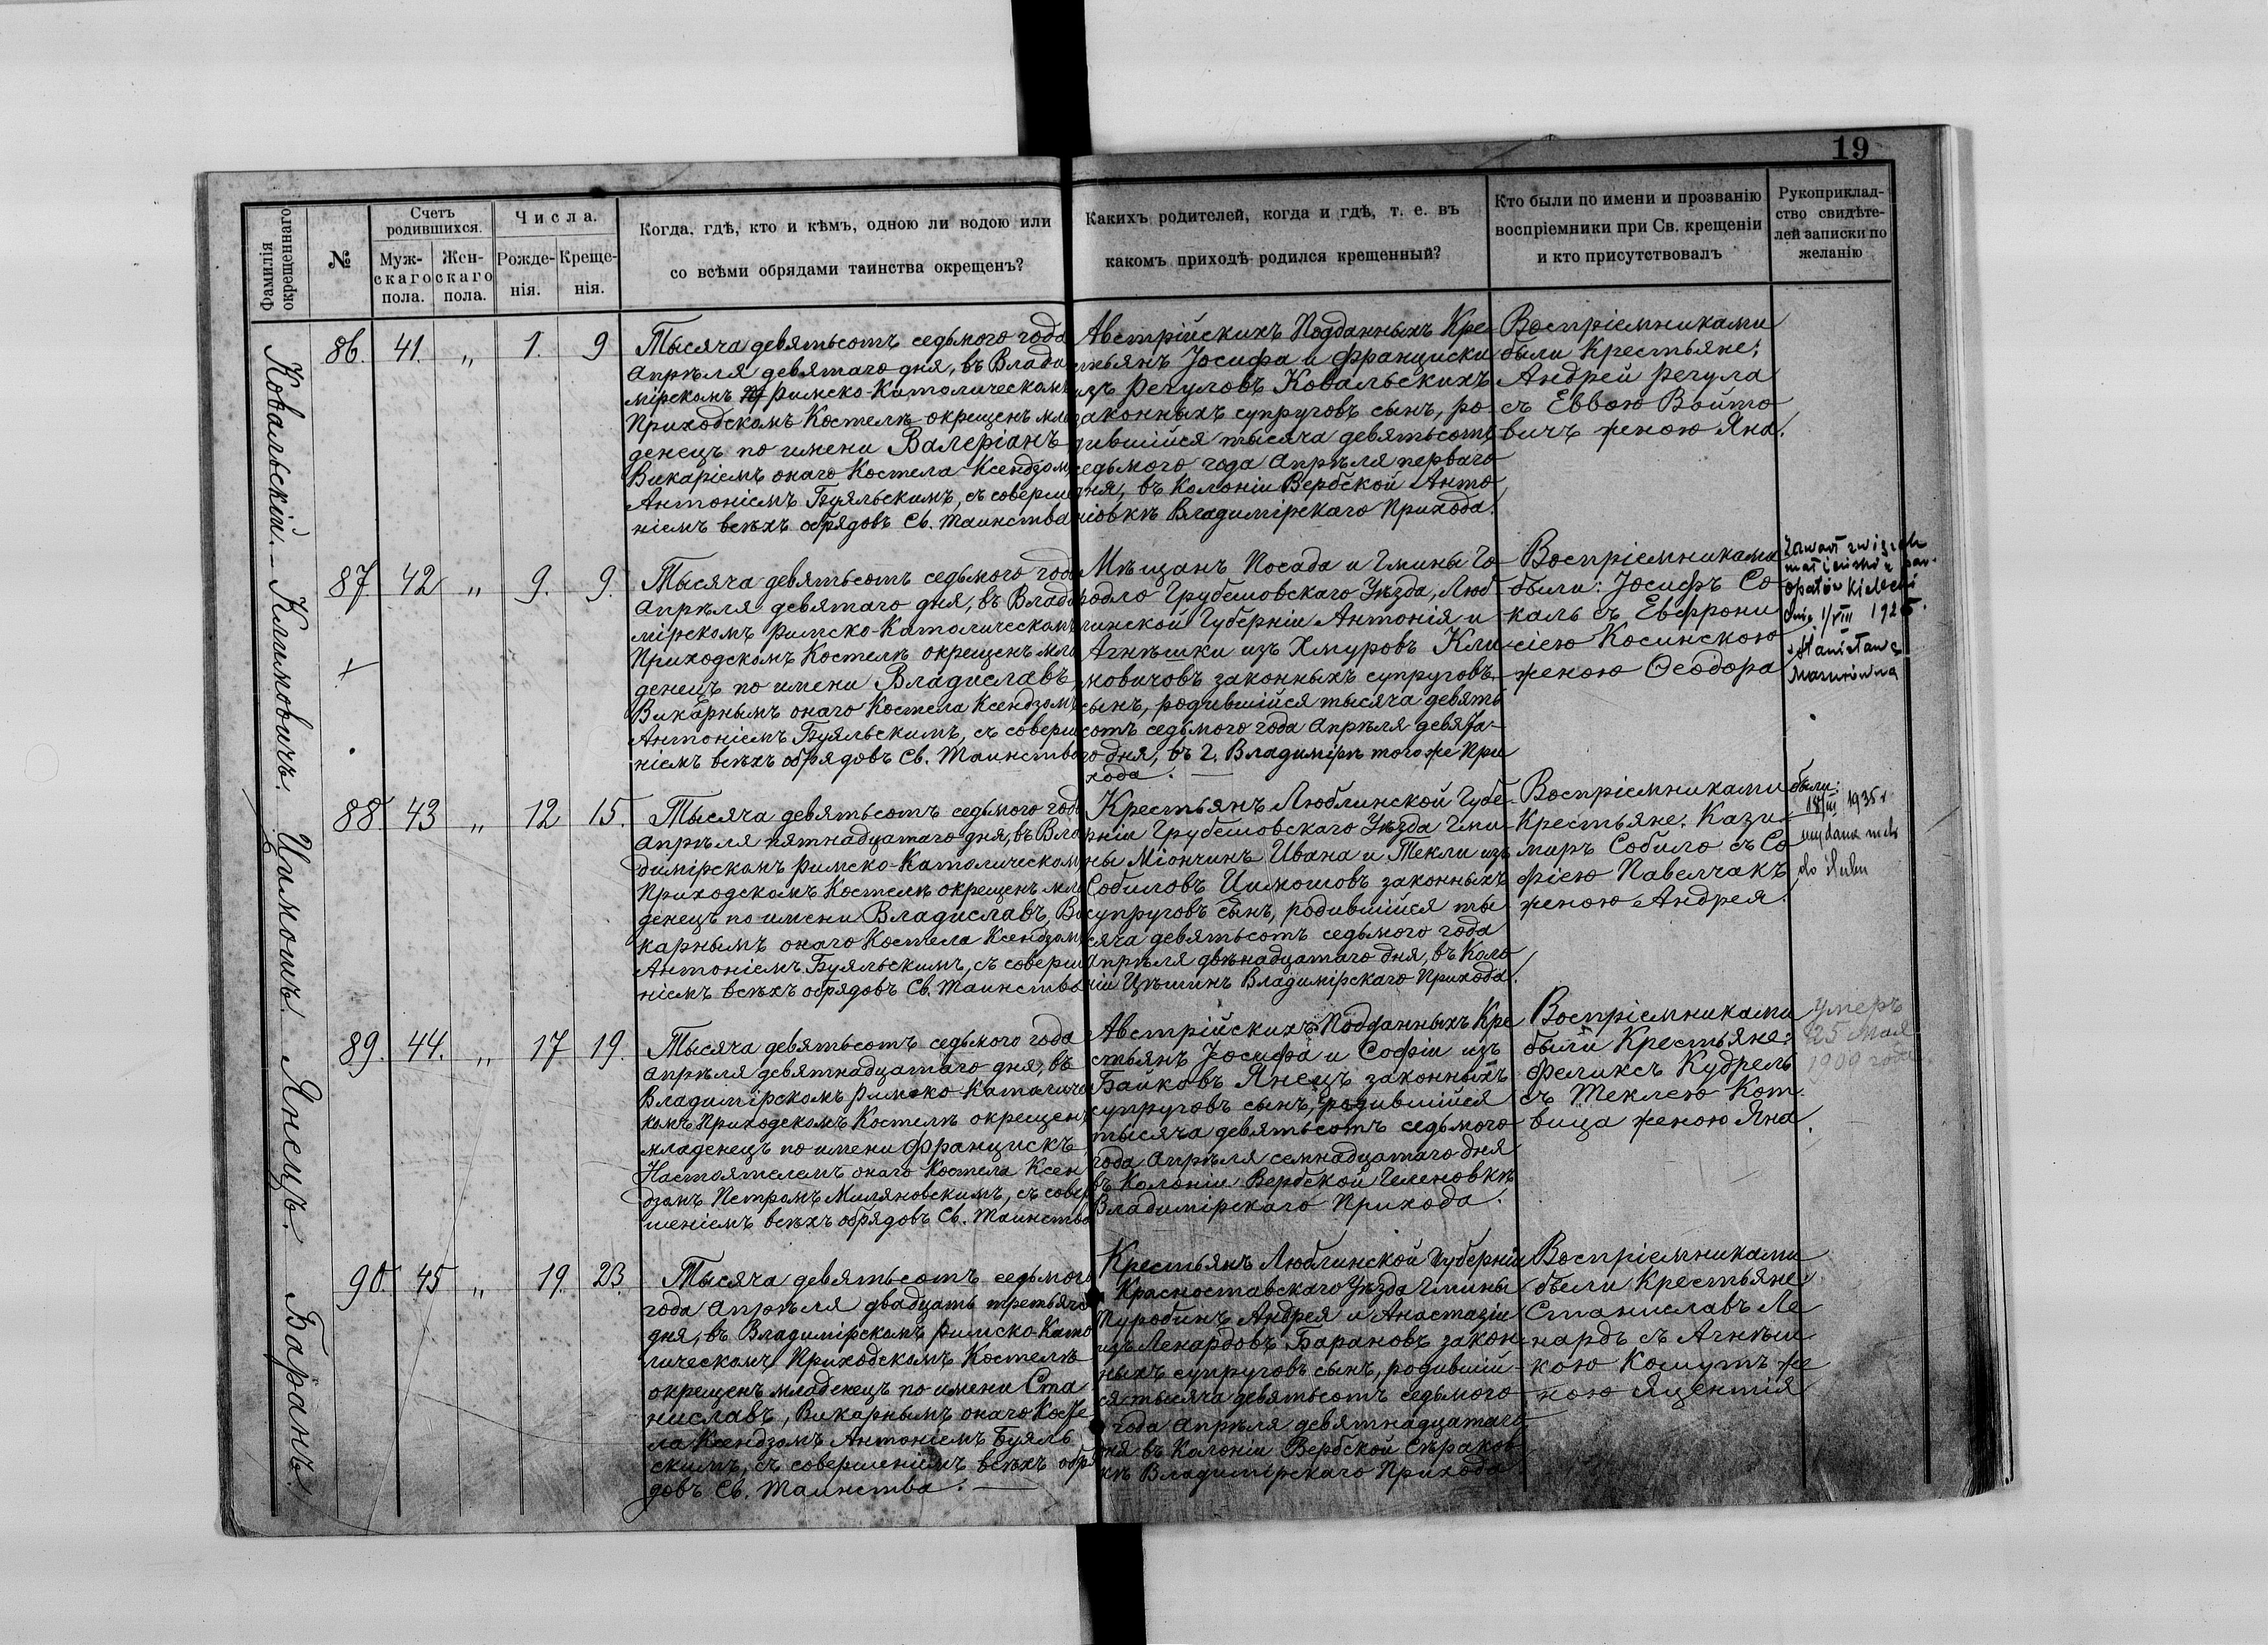 19
Фамилія
окрещеннаго
№
Счетъ
родившихся.
Муж-
скаго
пола.
Жен-
скаго
пола.
Числа.
Рожде-
нія.
Креще-
нія.
Когда, гдѣ, кто и кѣмъ, одною ли водою или
со всѣми обрядами таинства окрещенъ?
Какихъ родителей, когда и гдѣ, т. е. въ
какомъ приходѣ родился крещенный?
Кто были по имени и прозванію
воспріемники при Св. крещеніи
и кто присутствовалъ
Рукоприклад-
ство свидѣте-
лей записки по
желанію
Ковальскій.
86. 41. „ 1. 9
Тысяча девятьсотъ седьмого года
Апрѣля девятаго дня, въ Влади
мірскомъ Римско-Католическомъ
Приходскомъ Костелѣ окрещенъ мла
денецъ по имени Валеріанъ
Викаріемъ онаго Костела Ксендзомъ
Антоніемъ Буяльскимъ, съ соверше
ніемъ всѣхъ обрядовъ Св. Таинства
Австрійскихъ Подданныхъ Кре
стьянъ Іосифа и Франциски
изъ Регуловъ Ковальскихъ
законныхъ супруговъ сынъ, ро
дившійся тысяча девятьсотъ
седьмого года Апрѣля перваго
дня, въ Колоніи Вербской Анто
ніовкѣ Владимірскаго Прихода.
Воспріемниками
были Крестьяне:
Андрей Регула
съ Еввою Войто
вичъ женою Яна.
Климовичъ.
87. 42 „ 9. 9.
Тысяча девятьсотъ седьмого года
Апрѣля девятаго дня, въ Влади
мірскомъ Римско-Католическомъ
Приходскомъ Костелѣ окрещенъ мла
денецъ по имени Владиславъ,
Викарнымъ онаго Костела Ксендзомъ
Антоніемъ Буяльскимъ, съ соверше
ніемъ всѣхъ обрядовъ Св. Таинства
Мѣщанъ Посада и Гмины Го
родло Грубешовскаго Уѣзда, Люб
линской Губерніи Антонія и
Агнѣшки изъ Хмуровъ Кли
мовичовъ законныхъ супруговъ
сынъ, родившійся тысяча девять
сотъ седьмого года Апрѣля девята
го дня, въ г. Владимірѣ того же При
хода.
Воспріемниками
были: Іосифъ Со
каль съ Евфрони
сіею Косинскою
женою Ѳеодора
Zawarł związek
małżeński w par.
Opatów Kielecki
dnia 1/VIII 192
z Stanisławą
Mazurówną
Цимошъ.
88. 43 „ 12 15.
Тысяча девятьсотъ седьмого года
Апрѣля пятнадцатаго дня, въ Вла
димірскомъ Римско-Католическомъ
Приходскомъ Костелѣ окрещенъ мла
денецъ по имени Владиславъ, Ви
карнымъ онаго Костела Ксендзомъ
Антоніемъ Буяльскимъ, съ соверше
ніемъ всѣхъ обрядовъ Св. Таинства
Крестьянъ Люблинской Губе
рніи Грубешовскаго Уѣзда Гми
ны Міончинъ Ивана и Текли изъ
Собиловъ Цимошовъ законныхъ
супруговъ сынъ, родившійся ты
сяча девятьсотъ седьмого года
Апрѣля двѣнадцатаго дня, въ Коло
ніи Цѣшинъ Владимірскаго Прихода.
Воспріемниками были:
Крестьяне. Кази
миръ Собило съ Со
фіею Павелчакъ
женою Андрея.
18/III 1935 r
wydana metr
do ślubu
Янецъ.
89. 44. „ 17 19.
Тысяча девятьсотъ седьмого года
Апрѣля девятнадцатаго дня, въ
Владимірскомъ Римско-Католичес
комъ Приходскомъ Костелѣ окрещенъ
младенецъ по имени Францискъ
Настоятелемъ онаго Костела Ксен
дзомъ Петромъ Миляновскимъ, съ совер
шеніемъ всѣхъ обрядовъ Св. Таинства
Австрійскихъ Подданныхъ Кре
стьянъ Іосифа и Софіи изъ
Байковъ Янецъ законныхъ
супруговъ сынъ, родившійся
тысяча девятьсотъ седьмого
года Апрѣля семнадцатаго дня
въ Колоніи Вербской Геленовкѣ
Владимірскаго Прихода.
Воспріемниками
были Крестьяне:
Феликсъ Кудрель
съ Теклею Кот.
вица женою Яна.
Умеръ
25 Мая
1909 года
Баранъ.
90. 45 „ 19. 23.
Тысяча девятьсотъ седьмого
года Апрѣля двадцать третьяго
дня, въ Владимірскомъ Римско-Като
лическомъ Приходскомъ Костелѣ
окрещенъ младенецъ по имени Ста
ниславъ, Викарнымъ онаго Косте
ла Ксендзомъ Антоніемъ Буяль
скимъ, съ совершеніемъ всѣхъ обря
довъ Св. Таинства.
Крестьянъ Люблинской Губерніи
Красноставскаго Уѣзда Гмины
Туробинъ Андрея и Анастазіи
изъ Ленардовъ Барановъ закон
ныхъ супруговъ сынъ, родившій
ся тысяча девятьсотъ седьмого
года Апрѣля девятнадцатаго
дня въ Колоніи Вербской Сѣраков
кѣ Владимірскаго Прихода
Воспріемниками
были Крестьяне
Станиславъ Ле
нардъ съ Агнѣш
кою Кошутъ же
ною Яцентія